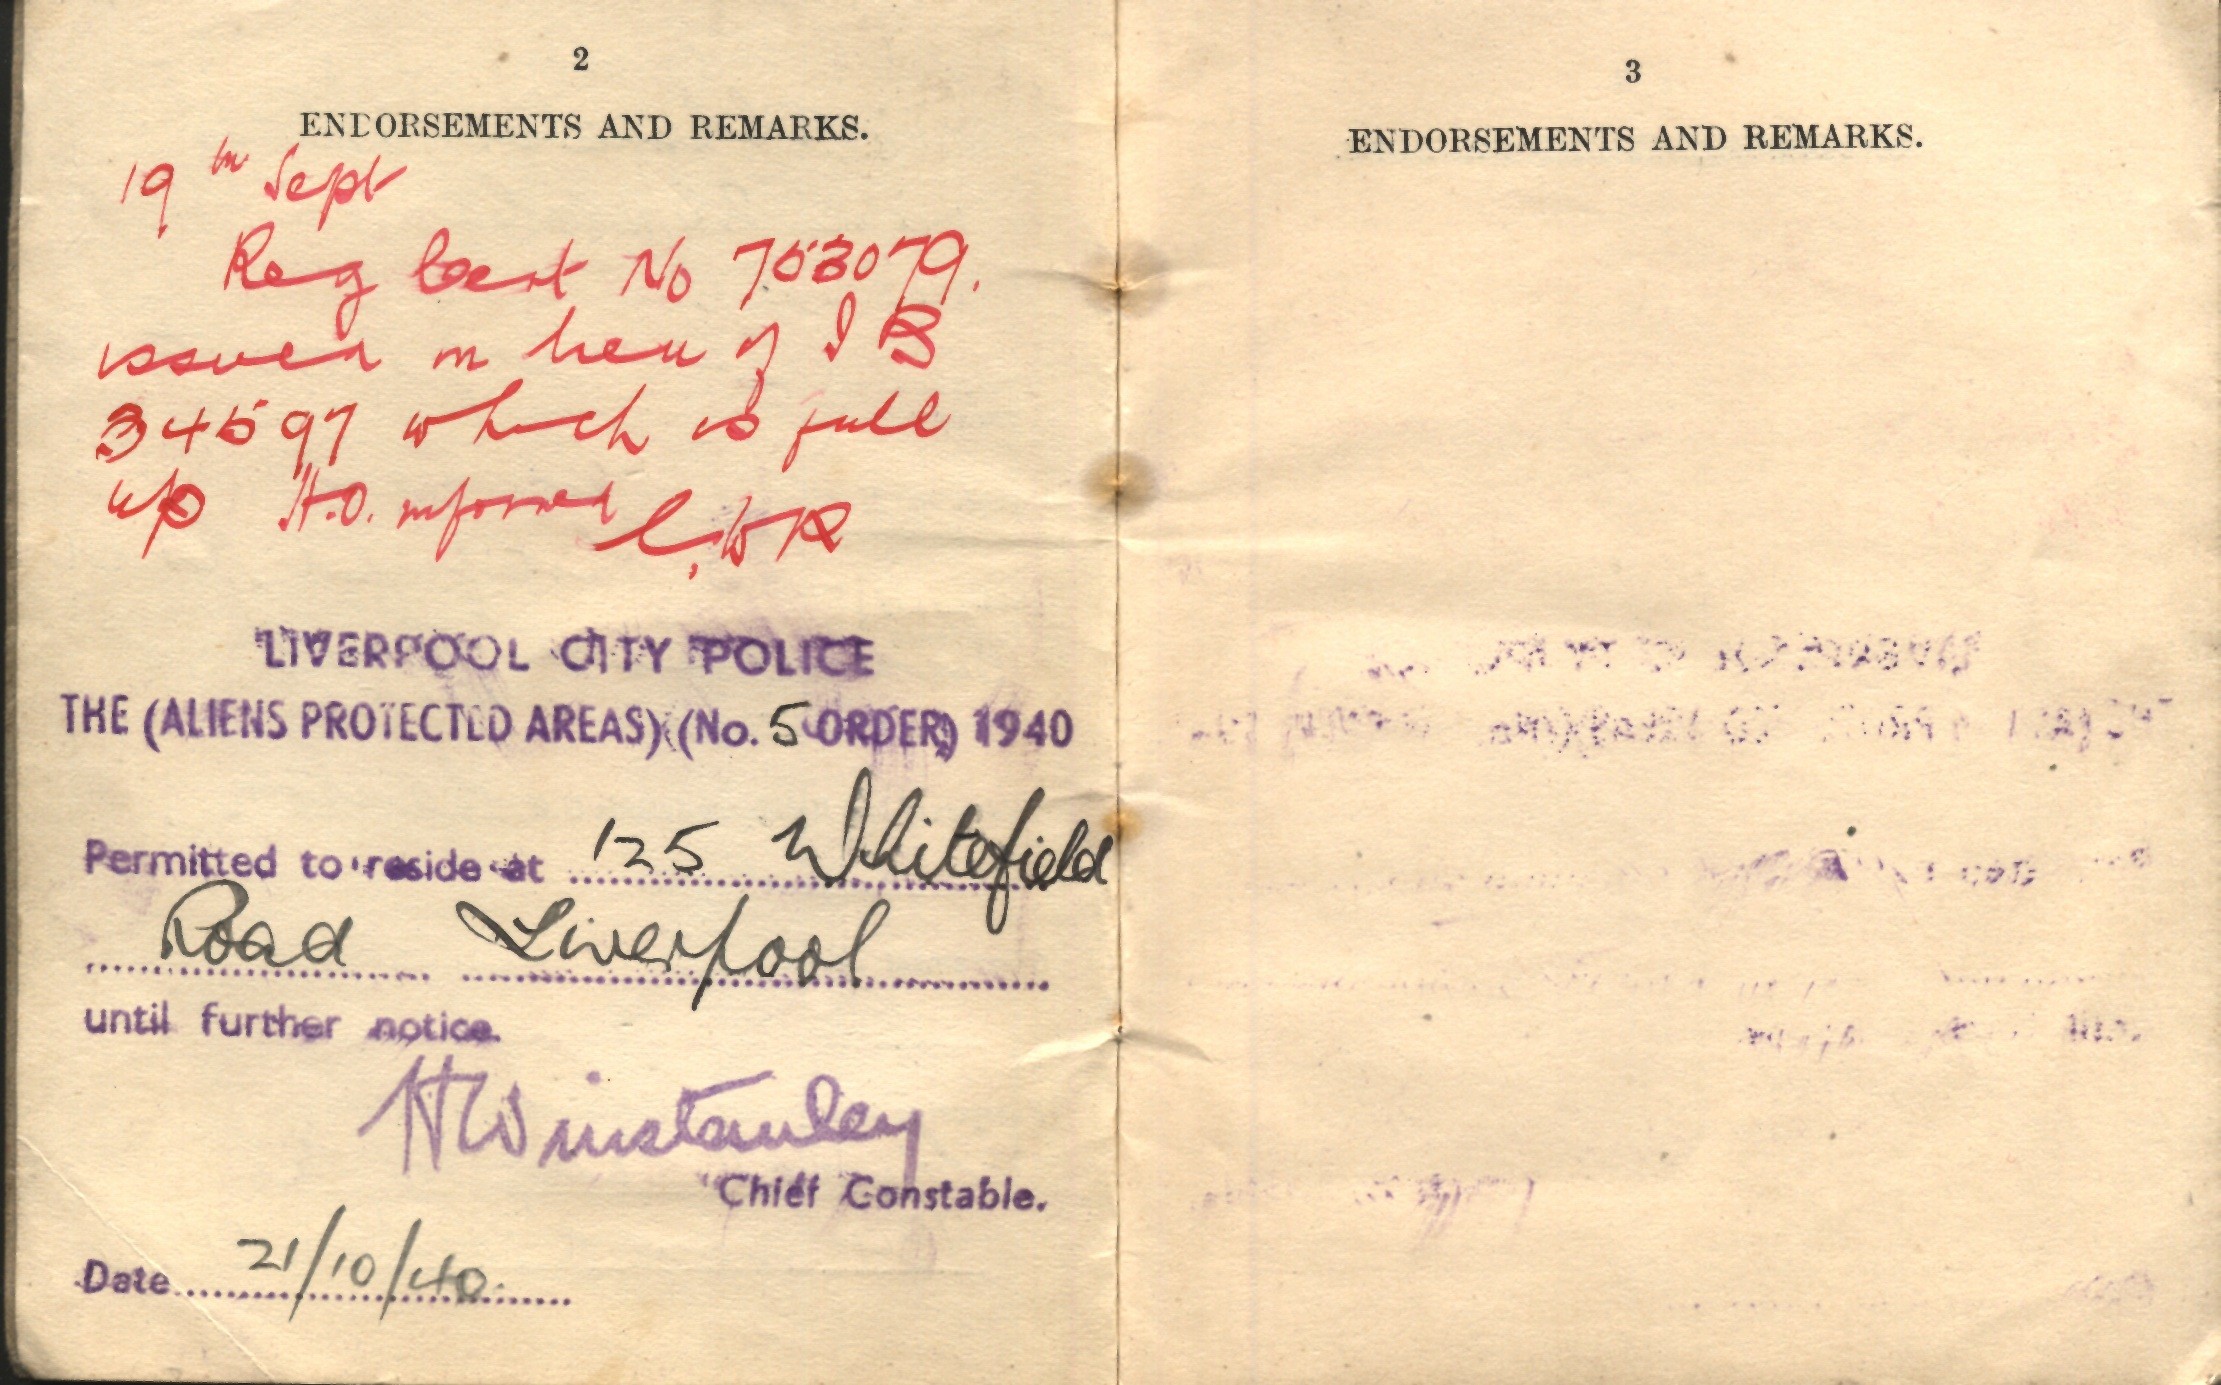 2
ENDORSEMENTS AND REMARKS.
19th Sept
Reg Cert No 753079.
issued in lieu of I B
34597 which is full
up H.O. informed
LIVERPOOL CITY POLICE
THE (ALIENS PROTECTED AREAS) (No. 5 ORDER) 1940
Permitted to reside at 125 Whitefield
Road Liverpool
until further notice.
H Winstanley
Chief Constable.
Date 21/10/40.
3
ENDORSEMENTS AND REMARKS.